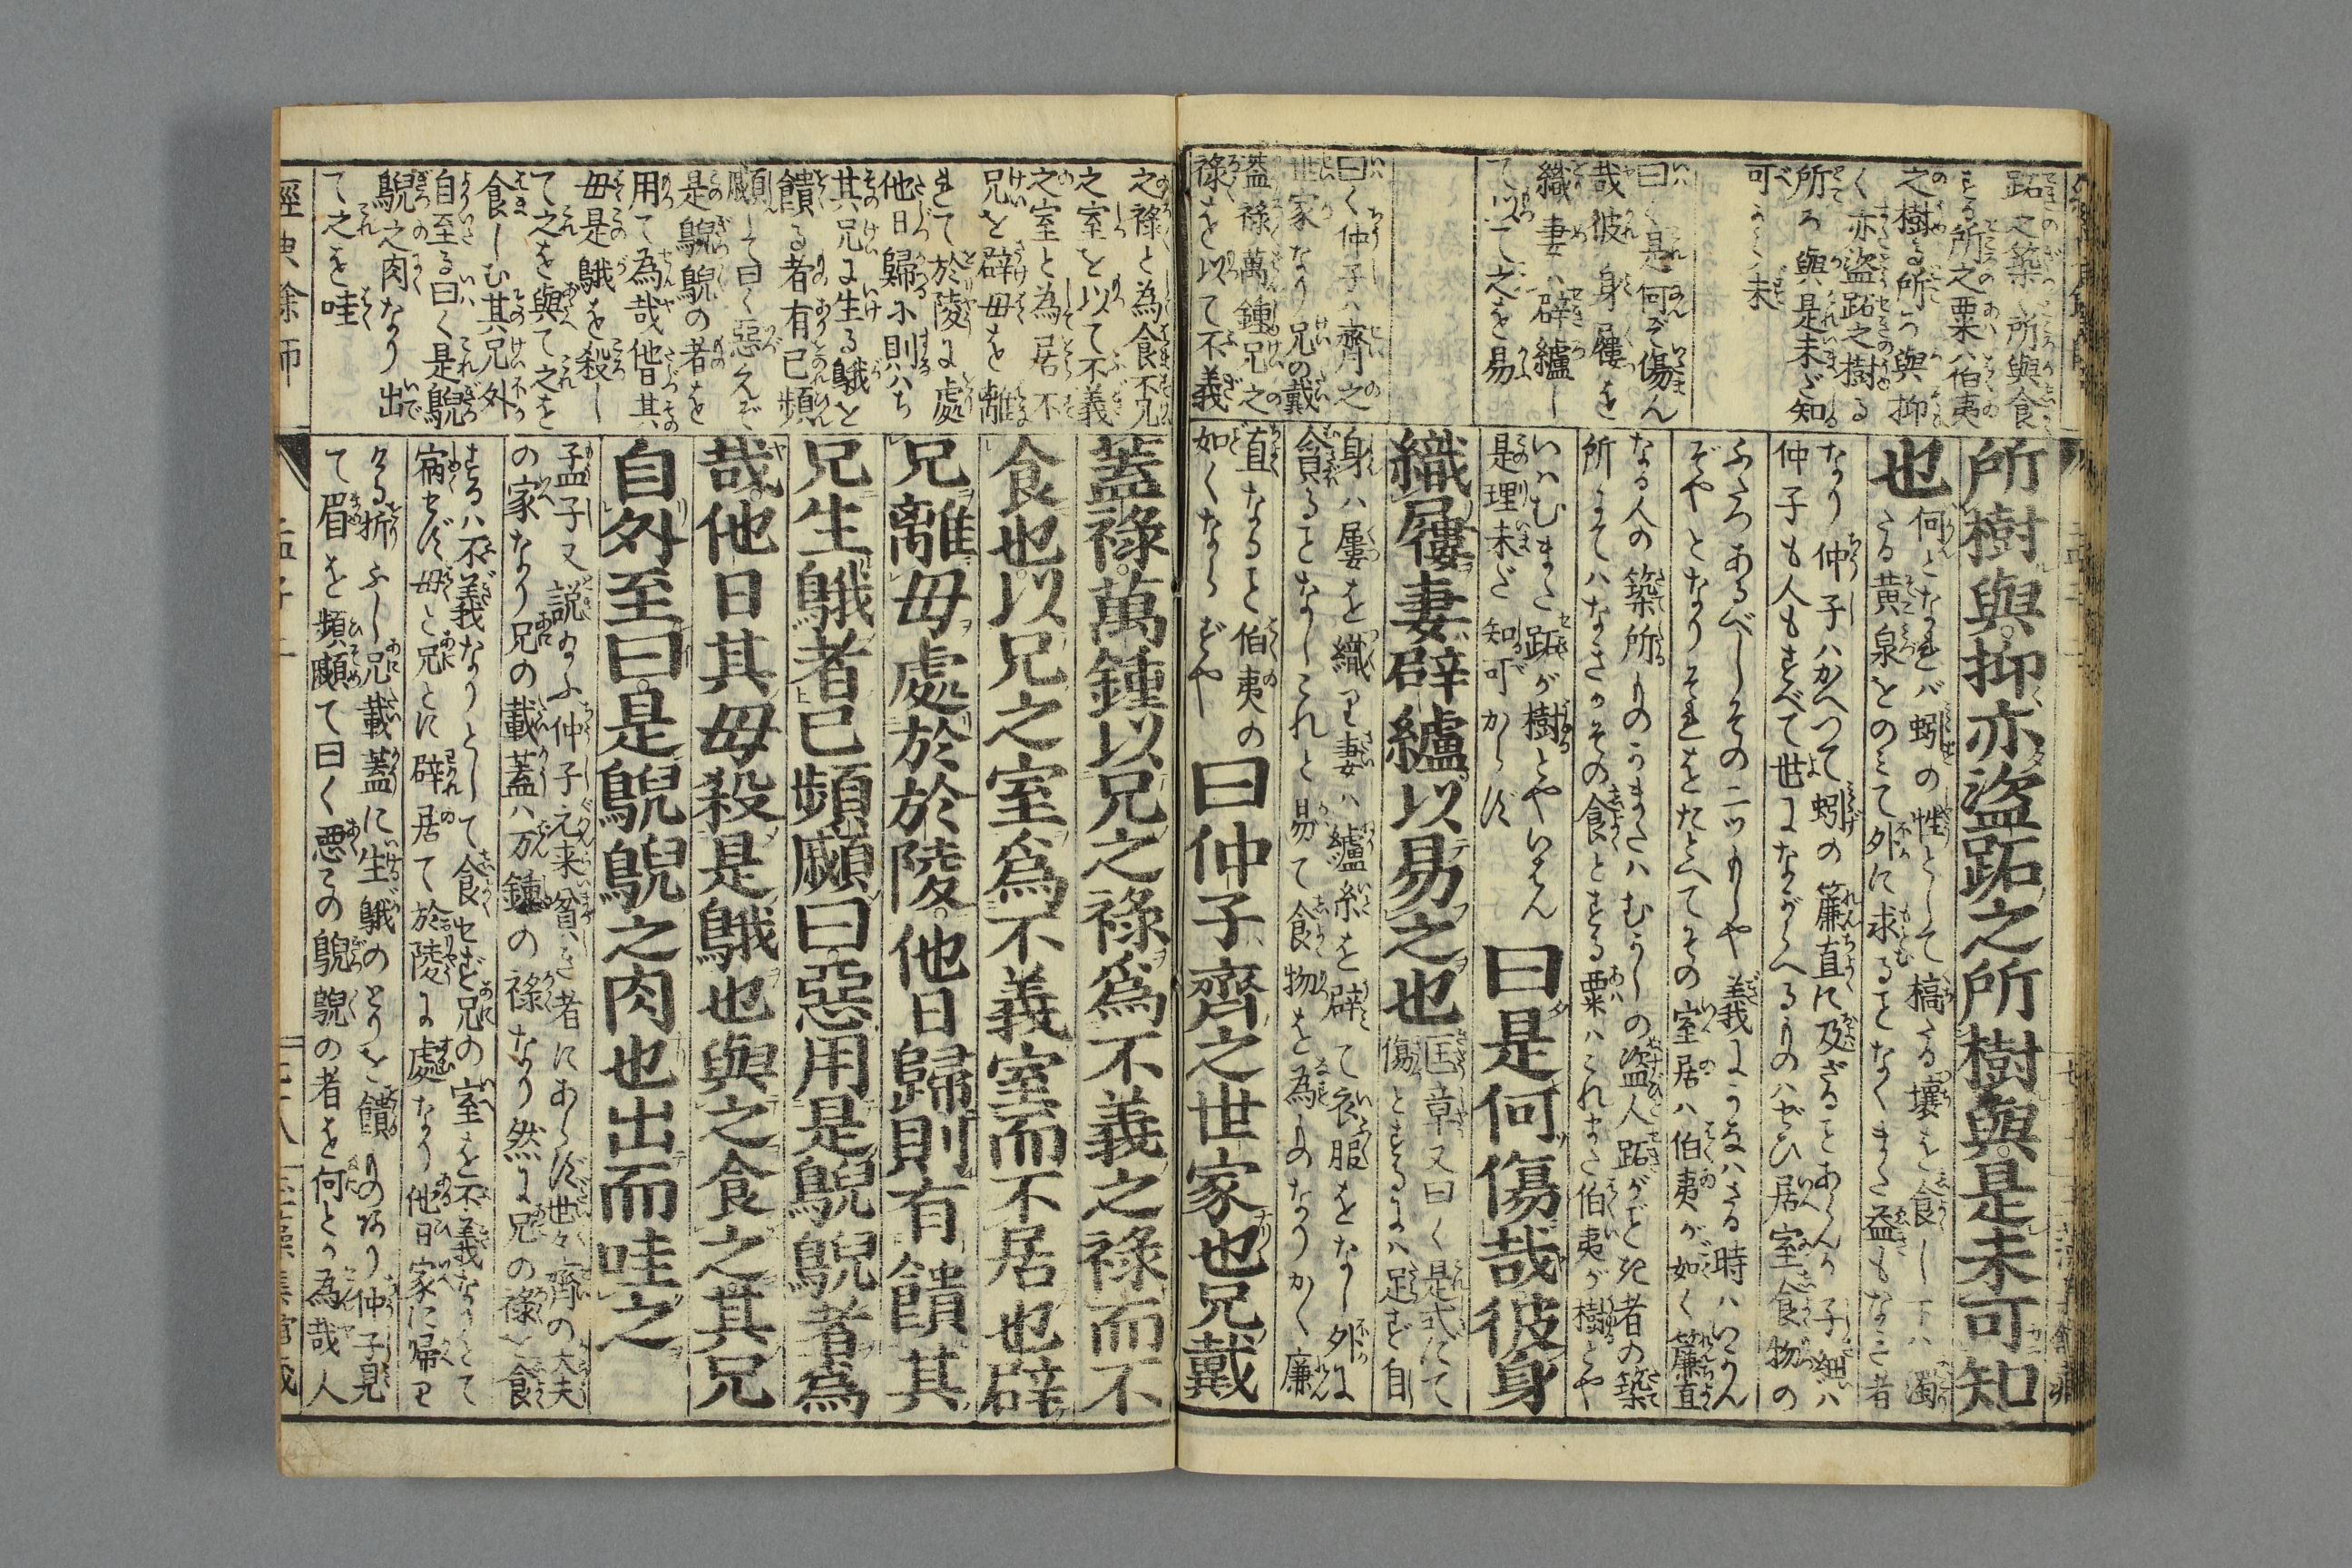 跖之築く所與食
する所之粟ハ伯夷
之樹る所ろ與抑
く亦盗跖之樹る
所ろ與是未ざ知
可らく未
曰く是何ぞ傷ん
哉彼身屨を
織妻ハ辟纑し
て以て之を易
曰く仲子ハ齊之
世家なり兄の戴
蓋禄萬鍾兄之
禄を以て不義
所樹與抑亦盗跖之所樹與是未可知
也
何となれバ蚓の性として槁たる壤を食し下ハ濁
たる黄泉をのミて外に求ることなくまた益もなき者
なり仲子ハかへつて蚓の簾直に及ざることあらんか子細ハ
仲子も人もすべて世にながらへるものハぜひ居室食物の
ふたつあるべしその二ツもしや義にかなハざる時ハいかん
ぞやとなりそれをたとへてその室居ハ伯夷が如く簾直
なる人の築所ものかまたハむかしの盗人跖がごとき者の築
所にてハなきかその食とする粟ハこれまた伯夷が樹とや
いはむまた跖が樹とやいはん
是理未だ知可からず
曰是何傷哉彼身
織屨妻辟纑以易之也
匡章又曰く是式にて
傷とするにハ足ず自
身ハ屨を織り妻ハ纑糸を辟て衣服をなし外に
貪ることなしこれと易て食物を為ものなりかく廉
直なること伯夷の
如くならずや
曰仲子齊之世家也兄戴
之禄と為食不兄
之室を以て不義
之室と為居不
兄を辟母を離
れて於陵に處
他日歸小則ハち
其兄に生る鵝を
饋る者有已頻
顣して曰く惡んぞ
是鶃鶃の者を
用て為哉他日其
母是鵝を殺し
て之を與て之を
食しむ其兄外
自至る曰く是鶃
鶃之肉なり出
て之を哇
蓋祿萬鍾以兄之祿爲不義之祿而不
食也以兄之室爲不義室而不居也辟
兄離母處於於陵他日歸則有饋其
兄生鵝者已頻顣曰惡用是鶃鶃者爲
哉他日其母殺是鵝也與之食之其兄
自外至曰是鶃鶃之肉也出而哇之
孟子又説給ふ仲子元来貧き者にあらず世々齊の大夫
の家なり兄の戴蓋ハ万鍾の禄なり然に兄の禄を食
するハ不義なりとして食せず兄の室を不義なりとて
宿せず母と兄とに辟居て於陵に處なり他日家に帰り
ける折ふし兄戴蓋に生鵝のとりを饋ものあり仲子見
て眉を頻顣て曰く悪この鶃鶃の者を何とか為哉人
經典餘師